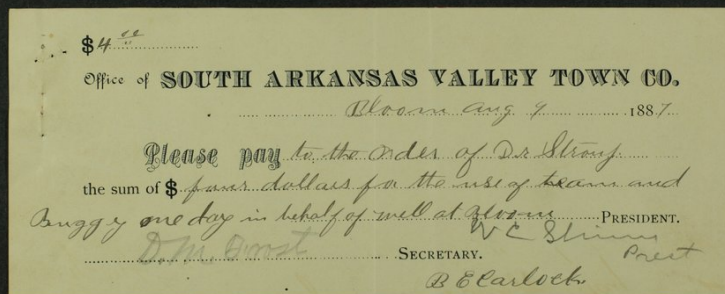 $4.00
Office of SOUTH ARKANSAS VALLEY TOWN CO.
Bloom Aug 9 1887
Please pay to the order of Dr Strong
the sum of $ four dollars for the use of team and
Buggy one day in behalf of well at Bloom PRESIDENT.
W C Prest
D. M. Frost SECRETARY.
B E Carlock